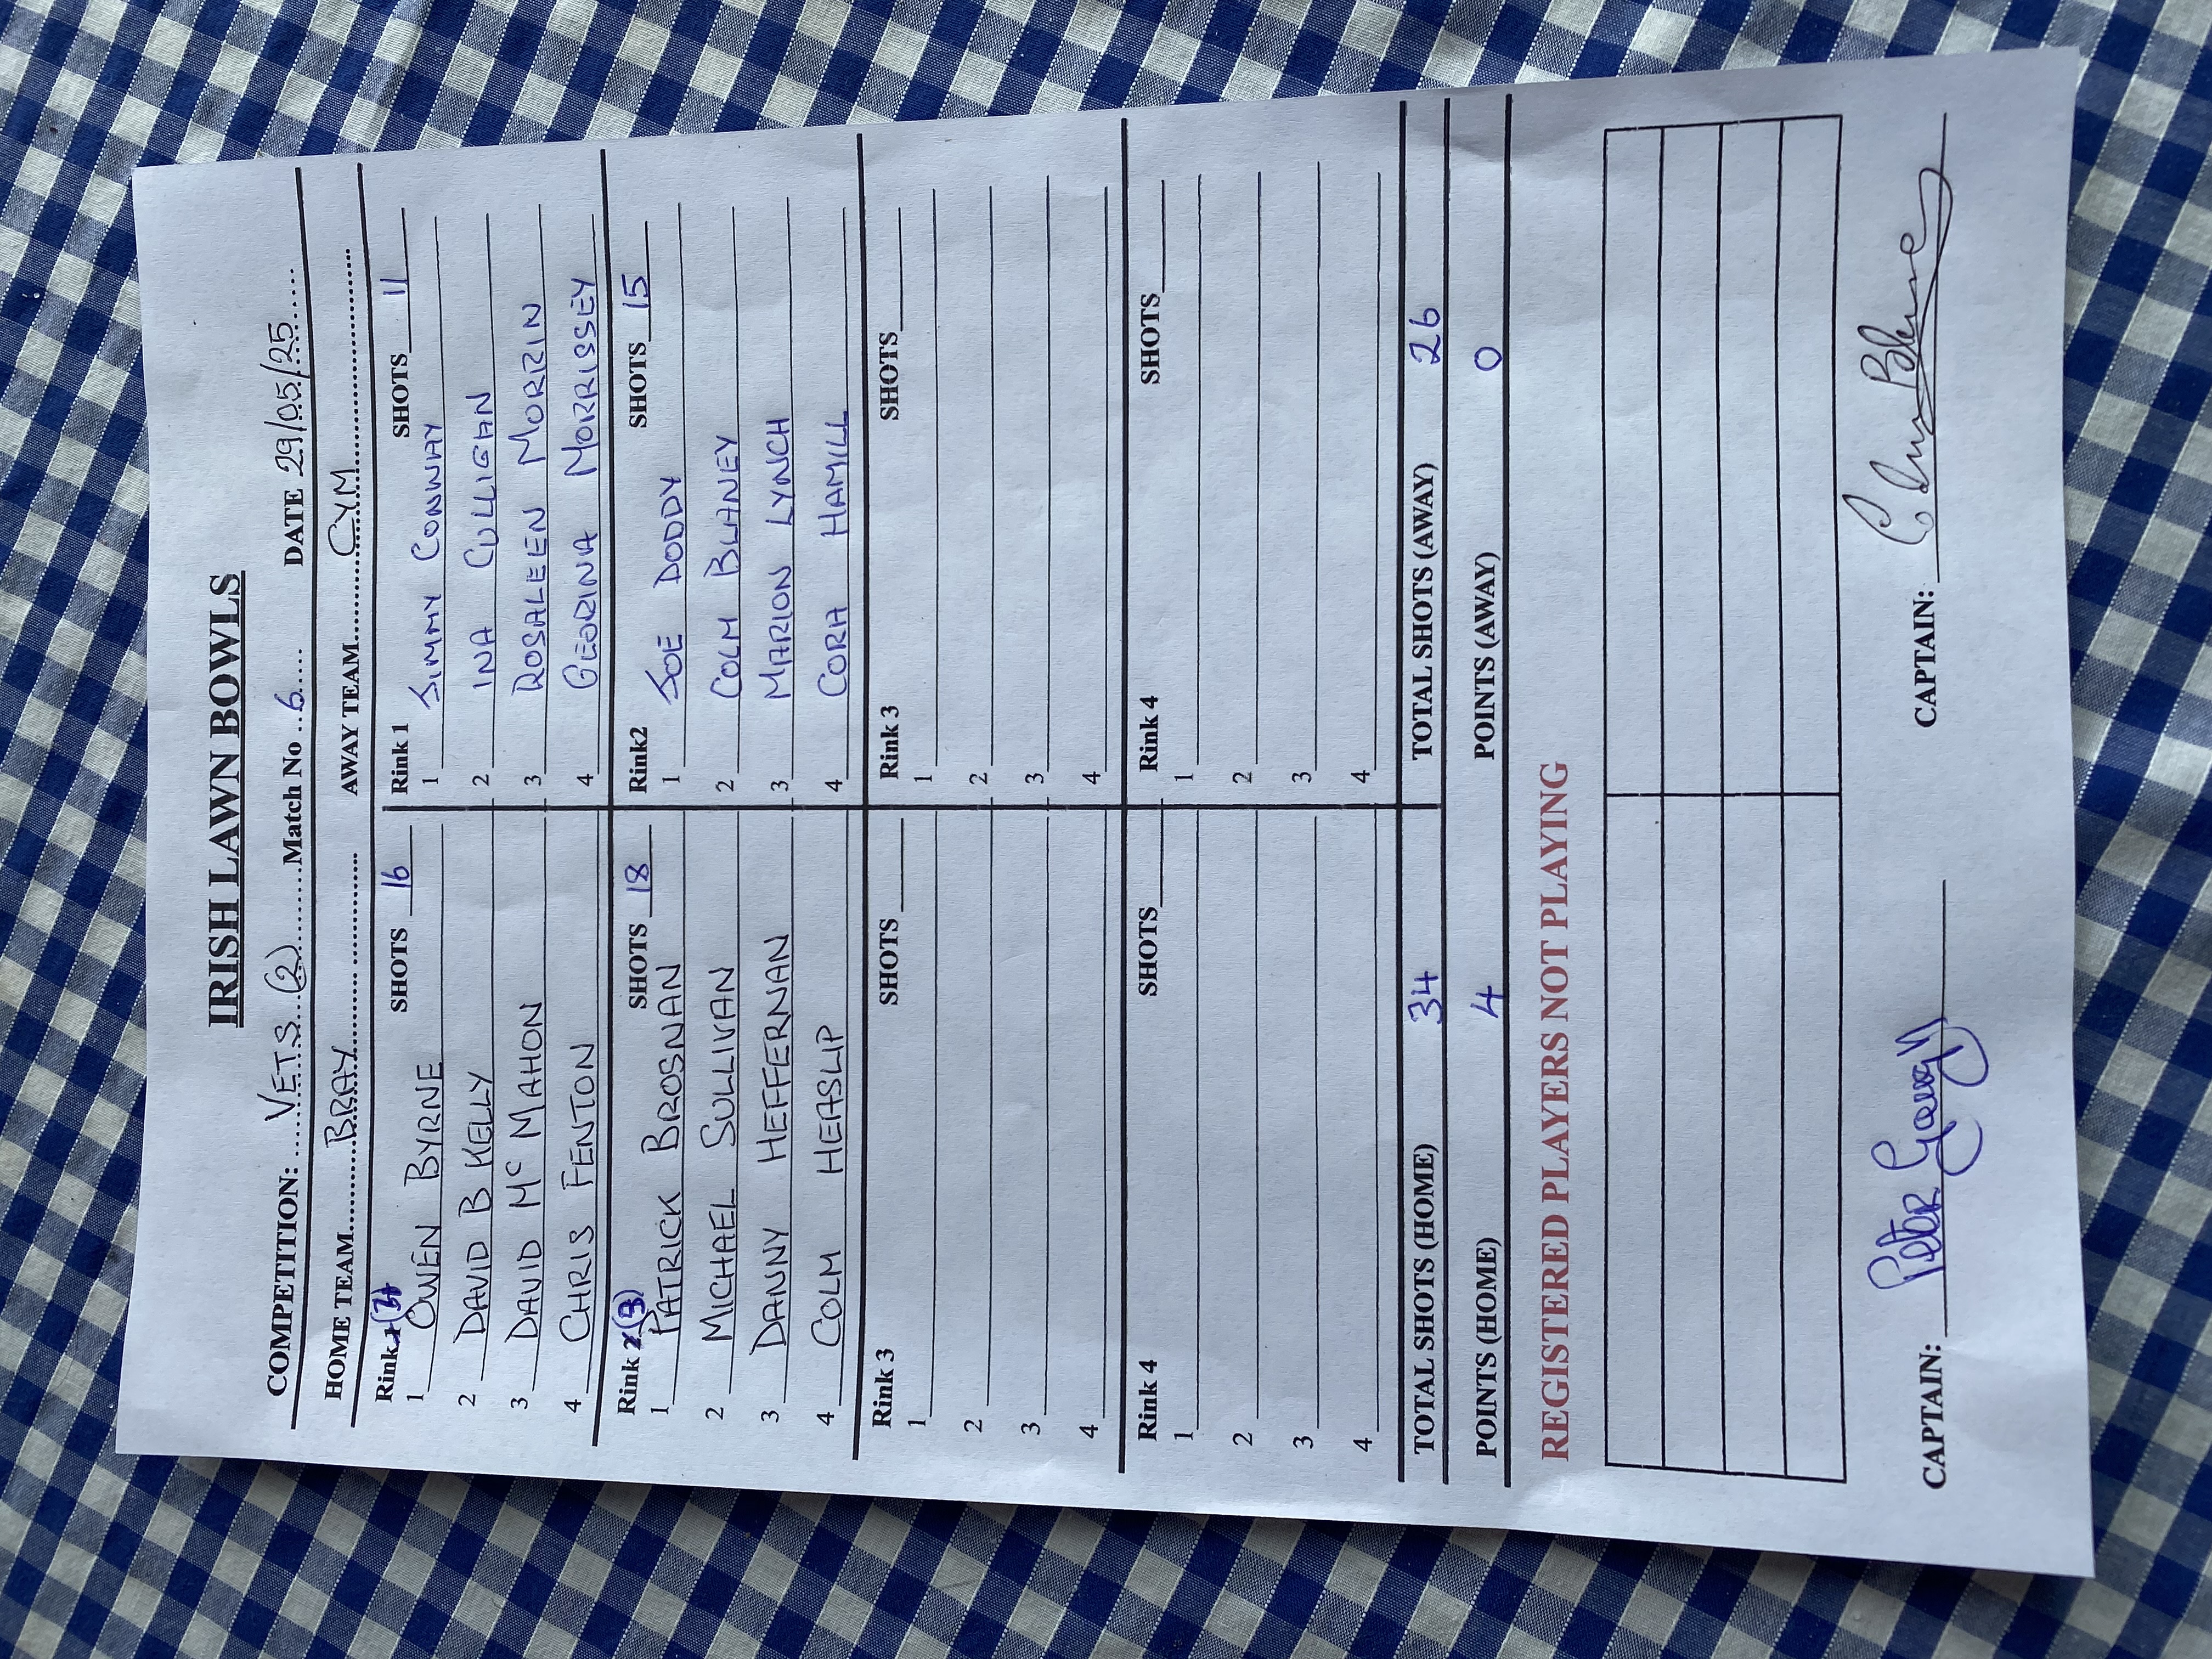 IRISH LAWN BOWLS
COMPETITION: VETS (2) Match No 6 DATE 29/05/25
HOME TEAM BRAY AWAY TEAM CYM
Rink SHOTS 16 Rink 1 SHOTS 11
1 OWEN BYRNE 1 JIMMY CONWAY
2 DAVID B KELLY 2 INA CULLIGAN
3 DAVID Mc MAHON 3 ROSALEEN MORRIN
4 CHRIS FENTON 4 GEORINA MORRISSEY
Rink (3) SHOTS 18 Rink2 SHOTS 15
1 PATRICK BROSNAN 1 JOE DODDY
2 MICHAEL SULLIVAN 2 COLM BLANEY
3 DANNY HEFFERNAN 3 MARION LYNCH
4 COLM HEASLIP 4 CORA HAMILL
Rink 3 SHOTS Rink 3 SHOTS
1 1
2 2
3 3
4 4
Rink 4 SHOTS Rink 4 SHOTS
1 1
2 2
3 3
4 4
TOTAL SHOTS (HOME) 34 TOTAL SHOTS (AWAY) 26
POINTS (HOME) 4 POINTS (AWAY) 0
REGISTERED PLAYERS NOT PLAYING
CAPTAIN: Peter CAPTAIN: